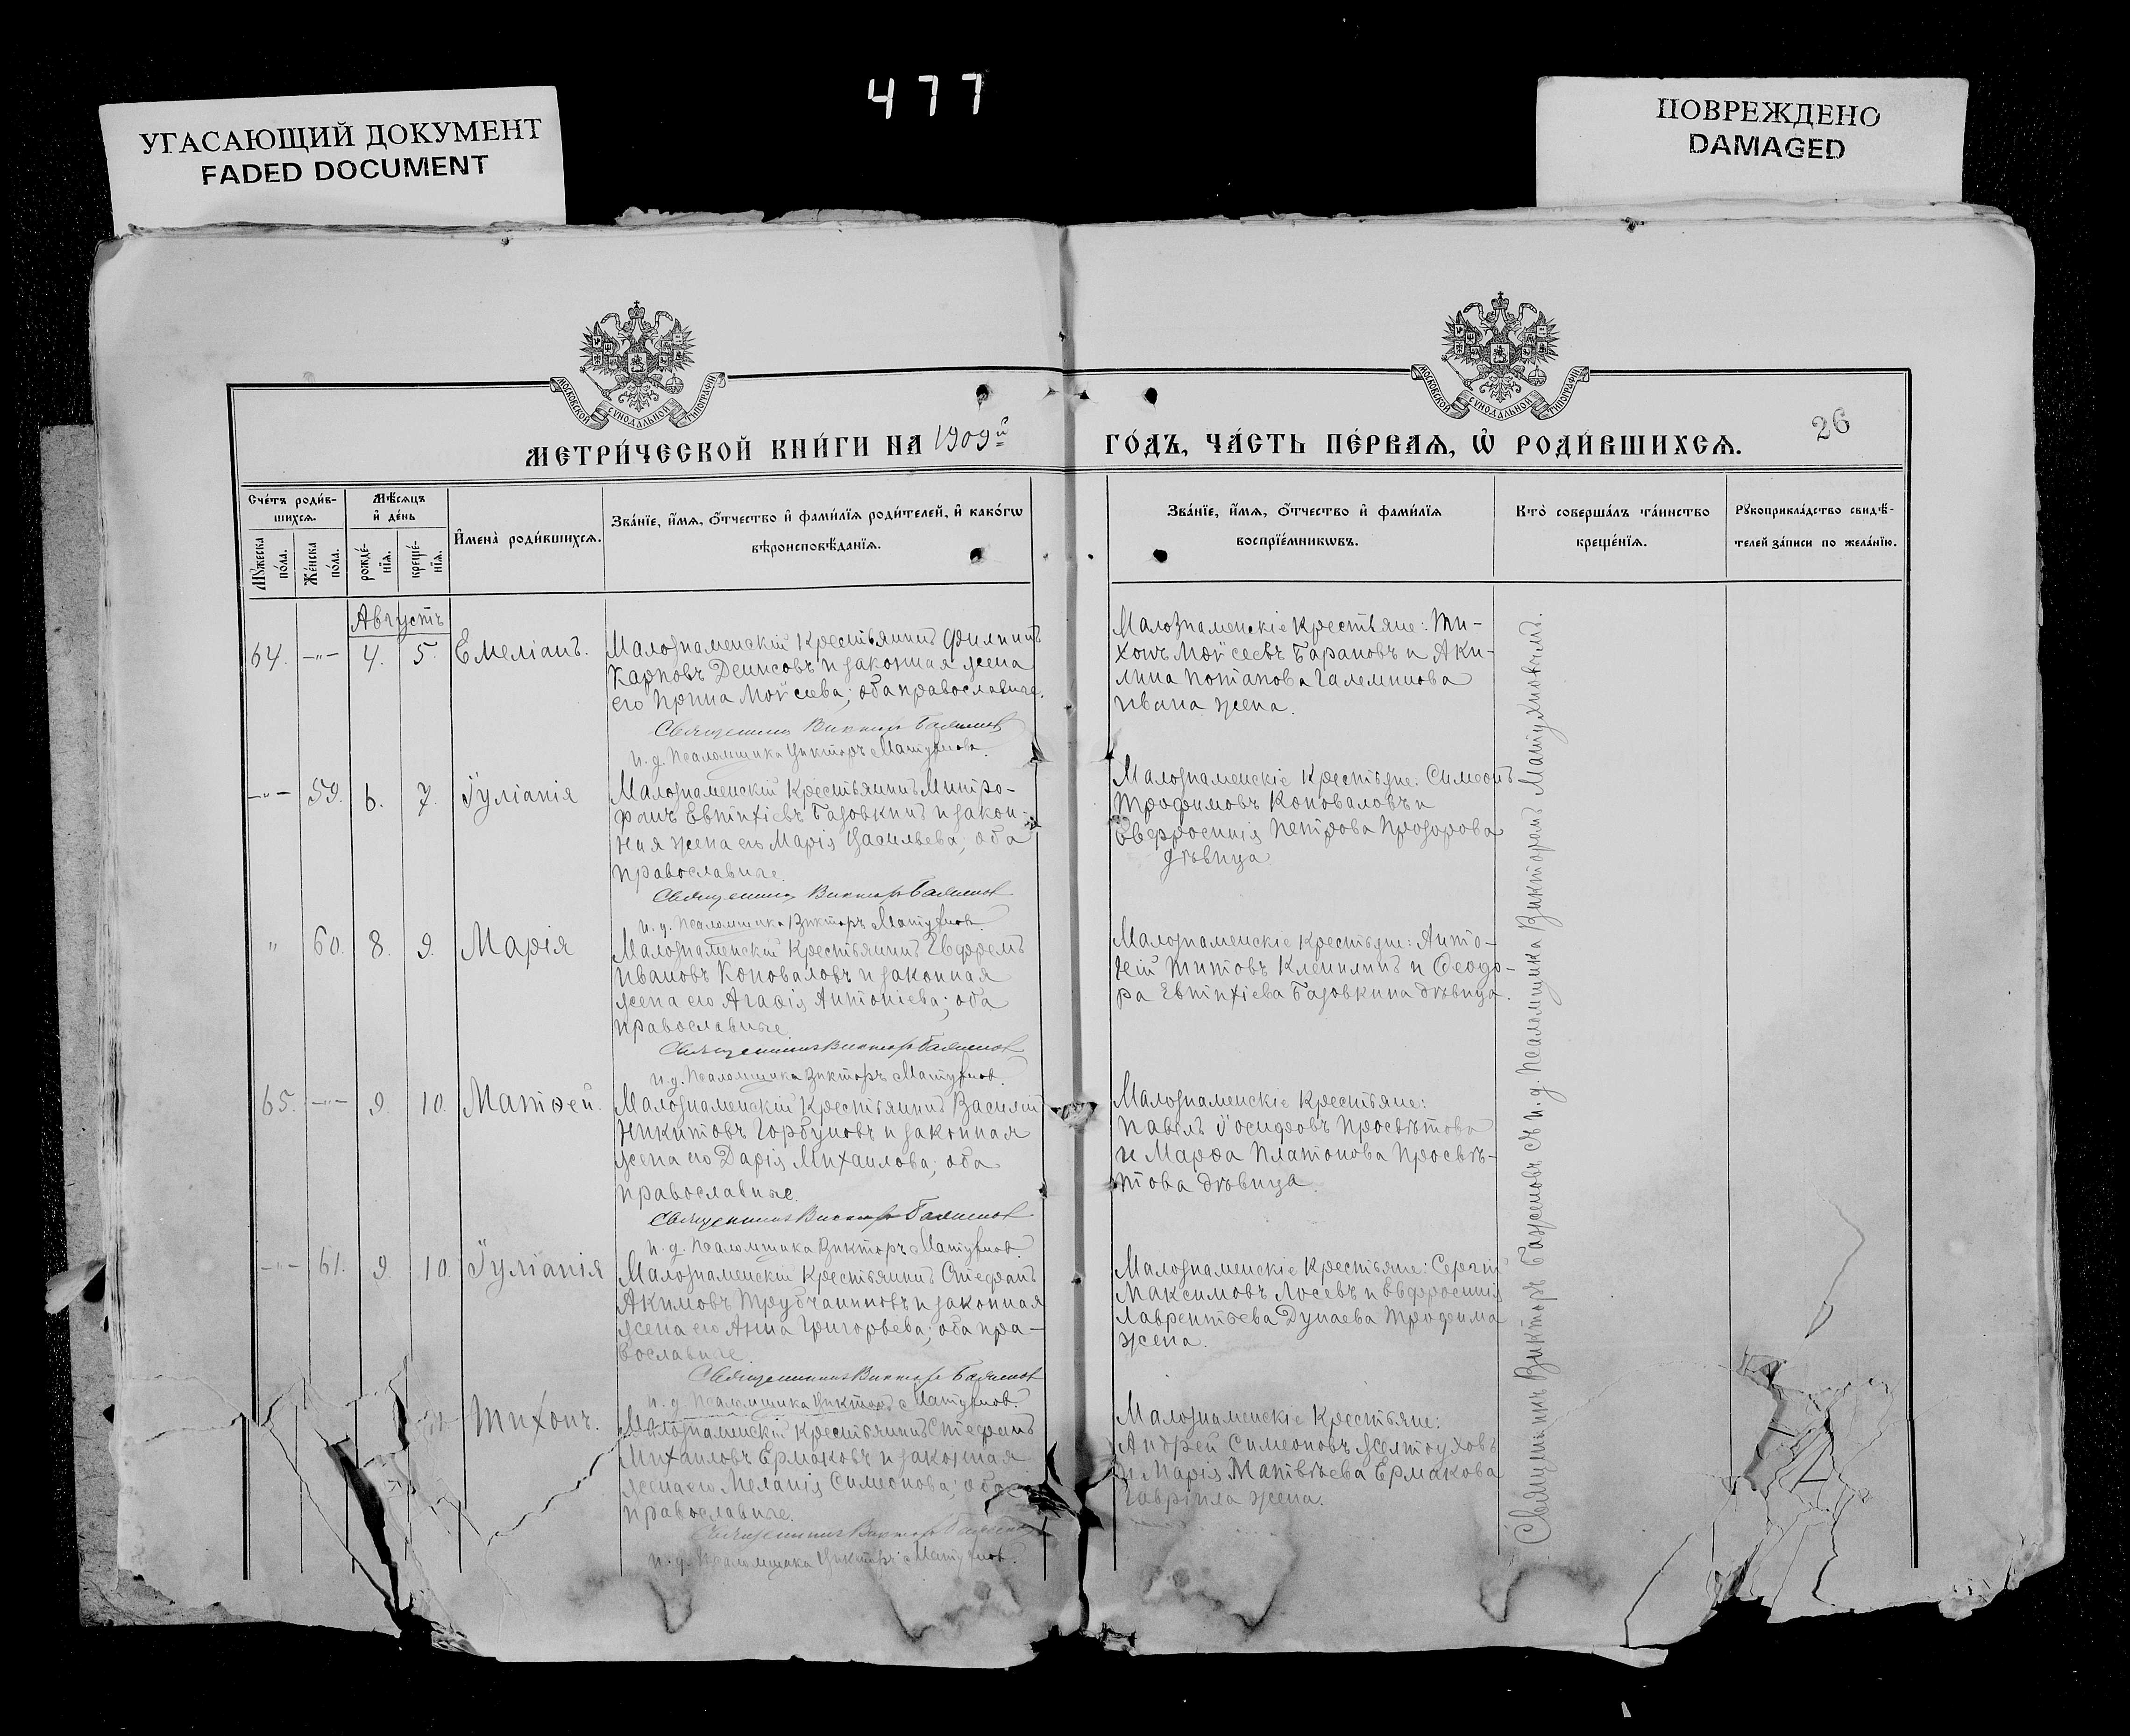 477
УГАСАЮЩИЙ ДОКУМЕНТ
FADED DOCUMENT
ПОВРЕЖДЕНО
DAMAGED
МОСКОВСКОЙ СУНОДАЛЬНОЙ ТИПОГРАФІИ
МОСКОВСКОЙ СУНОДАЛЬНОЙ ТИПОГРАФІИ
26
МЕТРИ́ЧЕСКОЙ КНИ́ГИ НА 1909й ГО́ДЪ, ЧА́СТЬ ПЕ́РВАѦ, Ѡ҆ РОДИ́ВШИХСѦ.
Сче́тъ роди́в-
шихсѧ.
Мѣ́сѧцъ
и҆ де́нь
Мꙋ́жеска по́ла.
Же́нска по́ла.
рожде́-
нїѧ.
креще́-
нїѧ.
И҆мена̀ роди́вшихсѧ.
Зва́нїе, и҆́мѧ, о҆́тчество и҆ фами́лїѧ роди́телей, и҆ како́гѡ
вѣроисповѣ́данїѧ.
Зва́нїе, и҆́мѧ, о҆́тчество и҆ фами́лїѧ
воспрїе́мникѡвъ.
Кто̀ соверша́лъ та́инство
креще́нїѧ.
Рꙋкоприкла́дство свидѣ́-
телей за́писи по жела́нїю.
Августъ
64. —"— 4. 5. Емеліанъ.
Малознаменскій крестьянинъ Филиппъ
Карповъ Денисовъ и законная жена
его Ирина Мойсеева; оба православные.
Священникъ Викторъ Баженовъ
и. д. псаломщика Викторъ Матухновъ.
Малознаменскіе крестьяне: Ти-
хонъ Мойсеевъ Барановъ и Аки-
лина Потапова Галеминова
Ивана жена.
—"— 59. 6. 7. Іуліанія
Малознаменскій крестьянинъ Митро-
фанъ Евтихіевъ Базовкинъ и закон-
ная жена его Марія Васильева; оба
православные.
Священникъ Викторъ Баженовъ
и. д. псаломщика Викторъ Матухновъ.
Малознаменскіе крестьяне: Симеонъ
Трофимовъ Коноваловъ и
Евфросинія Петрова Прозорова
дѣвица
" 60. 8. 9. Марія
Малознаменскій крестьянинъ Евфремъ
Ивановъ Коноваловъ и законная
жена его Агафія Антоніева; оба
православные.
Священникъ Викторъ Баженовъ
и. д. псаломщика Викторъ Матухновъ.
Малознаменскіе крестьяне: Анто-
ній Титовъ и Ѳеодо-
ра Евтихіева Базовкина дѣвица.
65. —"— 9. 10. Матѳей.
Малознаменскій крестьянинъ Василій
Никитовъ Горбуновъ и законная
жена его Дарія Михаилова; оба
православные.
Священникъ Викторъ Баженовъ
и. д. псаломщика Викторъ Матухновъ.
Малознаменскіе крестьяне:
Павелъ Іосифовъ Просвѣтовъ
и Марѳа Платонова Просвѣ-
това дѣвица.
—"— 61. 9. 10. Іуліанія
Малознаменскій крестьянинъ Стефанъ
Акимовъ Трубчаниновъ и законная
жена его Анна Григорьева; оба пра-
вославные.
Священникъ Викторъ Баженовъ
и. д. псаломщика Викторъ Матухновъ.
Малознаменскіе крестьяне: Сергій
Максимовъ Лосевъ и Евфросинія
Лаврентьева Дунаева Трофима
жена.
Тихонъ.
Малознаменскій крестьянинъ Стефанъ
Михаиловъ Ермаковъ и законная
жена его Меланія Симеонова; оба
православные.
Священникъ Викторъ Баженовъ
и. д. псаломщика Викторъ Матухновъ.
Малознаменскіе крестьяне:
Андрей Симеоновъ Желтоуховъ
и Марія Матвѣева Ермакова
Гавріила жена.
Священникъ Викторъ Баженовъ съ и. д. псаломщика Викторомъ Матухновымъ.